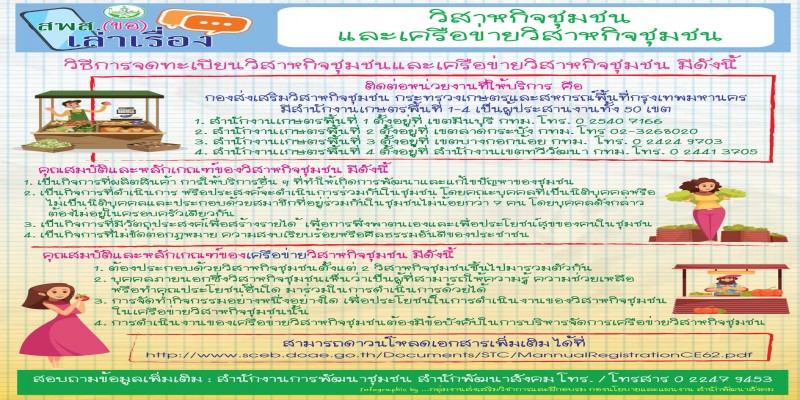 สพส.(ขอ)
เล่าเรื่อง
วิสาหกิจชุมชน
และเครือข่ายวิสาหกิจชุมชน
วิธีการจดทะเบียนวิสาหกิจชุมชนและเครือข่ายวิสาหกิจชุมชน มีดังนี้
ติดต่อหน่วยงานที่ให้บริการ คือ
กองส่งเสริมวิสาหกิจชุมชน กระทรวงเกษตรและสหกรณ์พื้นที่กรุงเทพมหานคร
มีสำนักงานเกษตรพื้นที่ 1-4 เป็นผู้ประสานงานทั้ง 50 เขต
1. สำนักงานเกษตรพื้นที่ 1 ตั้งอยู่ที่ เขตมีนบุรี กทม. โทร. 0 2540 7166
2. สำนักงานเกษตรพื้นที่ 2 ตั้งอยู่ที่ เขตลาดกระบัง กทม. โทร 02-3263020
3. สำนักงานเกษตรพื้นที่ 3 ตั้งอยู่ที่ เขตบางกอกน้อย กทม. โทร. 0 2424 9703
4. สำนักงานเกษตรพื้นที่ 4 ตั้งอยู่ที่ สำนักงานเขตทวีวัฒนา กทม. โทร. 0 2441 3705
คุณสมบัติและหลักเกณฑ์ของวิสาหกิจชุมชน มีดังนี้
1. เป็นกิจการที่ผลิตสินค้า การให้บริการอื่น ๆ ที่ทำให้เกิดการพัฒนาและแก้ไขปัญหาของชุมชน
2. เป็นกิจการที่ดำเนินการ หรือประสงค์จะดำเนินการร่วมกันในชุมชน โดยคณะบุคคลที่เป็นนิติบุคคลหรือ
ไม่เป็นนิติบุคคลและประกอบด้วยสมาชิกที่อยู่ร่วมกันในชุมชนไม่น้อยกว่า 7 คน โดยบุคคลดังกล่าว
ต้องไม่อยู่ในครอบครัวเดียวกัน
3. เป็นกิจการที่มีวัตถุประสงค์เพื่อสร้างรายได้ เพื่อการพึ่งพาตนเองและเพื่อประโยชน์สุขของคนในชุมชน
4. เป็นกิจการที่ไม่ขัดต่อกฎหมาย ความสงบเรียบร้อยหรือศีลธรรมอันดีของประชาชน
คุณสมบัติและหลักเกณฑ์ของเครือข่ายวิสาหกิจชุมชน มีดังนี้
1. ต้องประกอบด้วยวิสาหกิจชุมชนตั้งแต่ 2 วิสาหกิจชุมชนขึ้นไปมารวมตัวกัน
2. บุคคลภายนอกซึ่งวิสาหกิจชุมชนเห็นว่าเป็นผู้ที่สามารถให้ความรู้ ความช่วยเหลือ
หรือทำคุณประโยชน์อื่นใด มาร่วมในการดำเนินการด้วยได้
3. การจัดทำกิจกรรมอย่างหนึ่งอย่างใด เพื่อประโยชน์ในการดำเนินงานของวิสาหกิจชุมชน
ในเครือข่ายวิสาหกิจชุมชนนั้น
4. การดำเนินงานของเครือข่ายวิสาหกิจชุมชนต้องมีข้อบังคับในการบริหารจัดการเครือข่ายวิสาหกิจชุมชน
สามารถดาวน์โหลดเอกสารเพิ่มเติมได้ที่
http://www.sceb.doae.go.th/Documents/STC/MannualRegistrationCE62.pdf
สอบถามข้อมูลเพิ่มเติม : สำนักงานการพัฒนาชุมชน สำนักพัฒนาสังคม โทร. /โทรสาร 0 2247 9453
Infographic by ...กลุ่มงานส่งเสริมวิชาการและฝึกอบรม กองนโยบายและแผนงาน สำนักพัฒนาสังคม